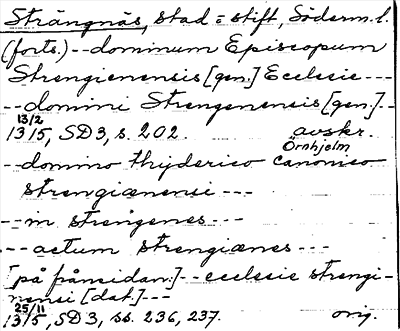 Strängnäs, stad o stift, Söderm. l.
(forts.) -- dominum Episcopum
Strengienensis [gen.] Ecclesie ---
-- domini Strengenensis [gen.] --
13/2
1315, SD 3, s. 202. avskr.
Örnhjelm
-- domino thyderico canonico
strengiænensi ---
-- in strengenes ---
-- actum strengiænes ---
[på frånsidan:] -- ecclesie strengi-
nensi [dat.] ---
25/11
1315, SD 3, ss. 236, 237. orig.